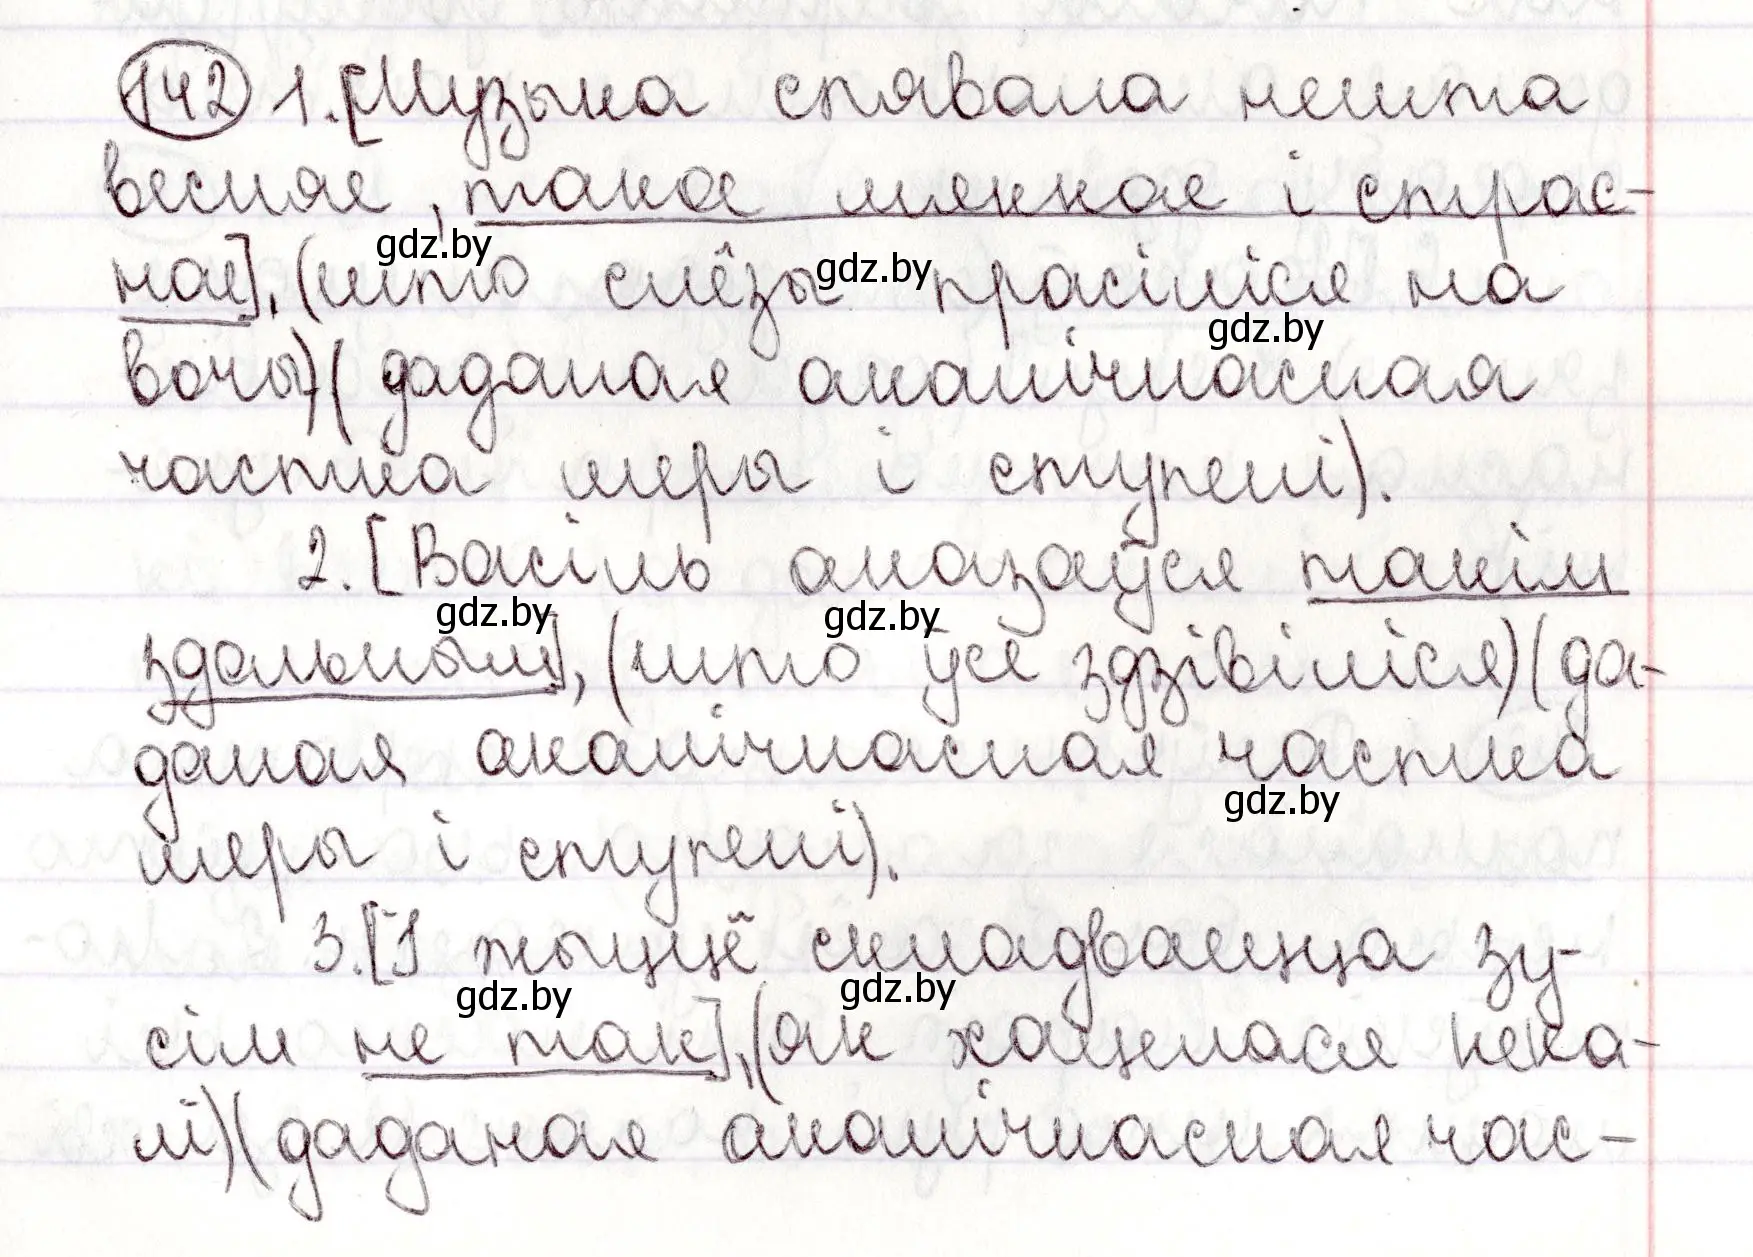 142 1. [Музыка спявала нешта
весняе, такое мяккае і страс-
нае], (што слёзы прасіліся на
вочы) (даданая акалічнасная
частка меры і ступені).
2. [Васіль аказаўся такім
здольным], (што ўсе здзівіліся) (да-
даная акалічнасная частка
меры і ступені).
3. [І жыццё складваецца зу-
сім не так], (як хацелася нека-
лі) (даданая акалічнасная час-
gdz.by
gdz.by
gdz.by
gdz.by
gdz.by
gdz.by
gdz.by
gdz.by